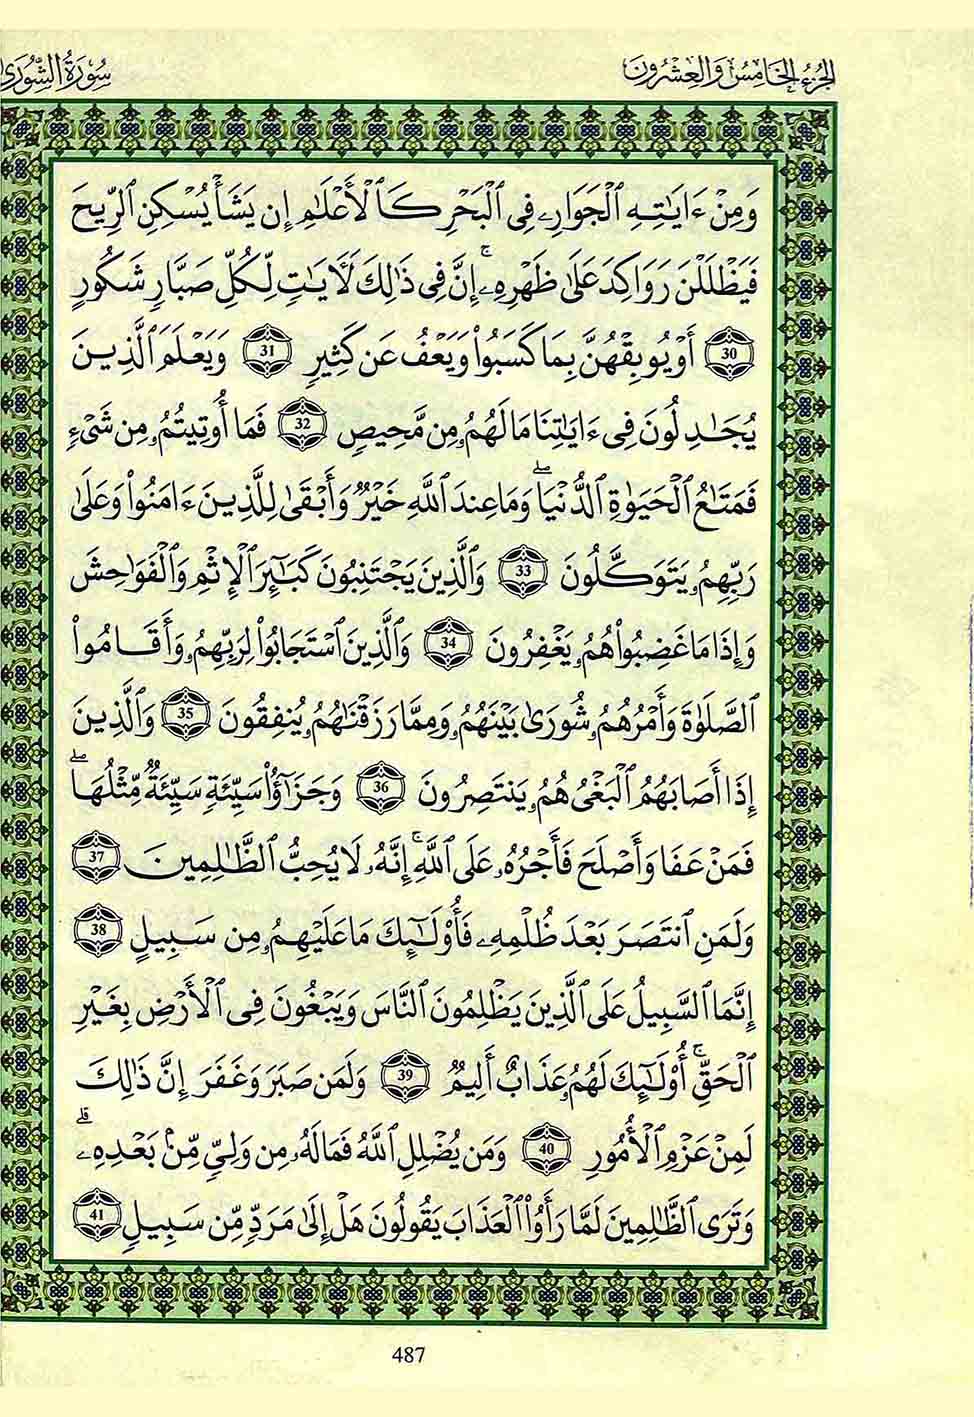 الجزء الخامس والعشرون
سورة الشورى
وَمِنْ ءَايَٰتِهِ ٱلْجَوَارِۦ فِى ٱلْبَحْرِ كَٱلْأَعْلَٰمِ إِن يَشَأْ يُسْكِنِ ٱلرِّيحَ
فَيَظْلَلْنَ رَوَاكِدَ عَلَىٰ ظَهْرِهِۦٓۚ إِنَّ فِى ذَٰلِكَ لَءَايَٰتٍ لِّكُلِّ صَبَّارٍ شَكُورٍ
30 أَوْ يُوبِقْهُنَّ بِمَا كَسَبُوا۟ وَيَعْفُ عَن كَثِيرٍ 31 وَيَعْلَمَ ٱلَّذِينَ
يُجَٰدِلُونَ فِىٓ ءَايَٰتِنَا مَا لَهُمُۥ مِن مَّحِيصٍ 32 فَمَآ أُوتِيتُمُۥ مِن شَىْءٍ
فَمَتَٰعُ ٱلْحَيَوٰةِ ٱلدُّنْيَاۖ وَمَا عِندَ ٱللَّهِ خَيْرٌ وَأَبْقَىٰ لِلَّذِينَ ءَامَنُوا۟ وَعَلَىٰ
رَبِّهِمُۥ يَتَوَكَّلُونَ 33 وَٱلَّذِينَ يَجْتَنِبُونَ كَبَٰٓئِرَ ٱلْإِثْمِ وَٱلْفَوَٰحِشَ
وَإِذَا مَا غَضِبُوا۟ هُمُۥ يَغْفِرُونَ 34 وَٱلَّذِينَ ٱسْتَجَابُوا۟ لِرَبِّهِمُۥ وَأَقَامُوا۟
ٱلصَّلَوٰةَ وَأَمْرُهُمُۥ شُورَىٰ بَيْنَهُمُۥ وَمِمَّا رَزَقْنَٰهُمُۥ يُنفِقُونَ 35 وَٱلَّذِينَ
إِذَآ أَصَابَهُمُ ٱلْبَغْىُ هُمُۥ يَنتَصِرُونَ 36 وَجَزَٰٓؤُا۟ سَيِّئَةٍ سَيِّئَةٌ مِّثْلُهَاۖ
فَمَنْ عَفَا وَأَصْلَحَ فَأَجْرُهُۥ عَلَى ٱللَّهِۚ إِنَّهُۥ لَا يُحِبُّ ٱلظَّٰلِمِينَ 37
وَلَمَنِ ٱنتَصَرَ بَعْدَ ظُلْمِهِۦ فَأُو۟لَٰٓئِكَ مَا عَلَيْهِمُۥ مِن سَبِيلٍ 38
إِنَّمَا ٱلسَّبِيلُ عَلَى ٱلَّذِينَ يَظْلِمُونَ ٱلنَّاسَ وَيَبْغُونَ فِى ٱلْأَرْضِ بِغَيْرِ
ٱلْحَقِّۚ أُو۟لَٰٓئِكَ لَهُمُۥ عَذَابٌ أَلِيمٌ 39 وَلَمَن صَبَرَ وَغَفَرَ إِنَّ ذَٰلِكَ
لَمِنْ عَزْمِ ٱلْأُمُورِ 40 وَمَن يُضْلِلِ ٱللَّهُ فَمَا لَهُۥ مِن وَلِىٍّ مِّنۢ بَعْدِهِۦۗ
وَتَرَى ٱلظَّٰلِمِينَ لَمَّا رَأَوُا۟ ٱلْعَذَابَ يَقُولُونَ هَلْ إِلَىٰ مَرَدٍّ مِّن سَبِيلٍ 41
487